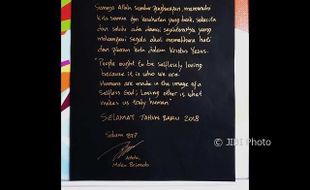 Semoga Allah sumber pengharapan, memenuhi
kita semua dengan kesehatan yang baik, sukacita
dan selalu ada damai sejahteraNya yang
melampaui segala akal memelihara hati
dan pikiran kita dalam Kristus Yesus.
"People ought to be selfless, loving
because it is who we are
Humans are made in the image of a
Selfless God; Loving other is what
makes us truly human"
SELAMAT TAHUN BARU 2018
Salam BTP
© JIBI Photo